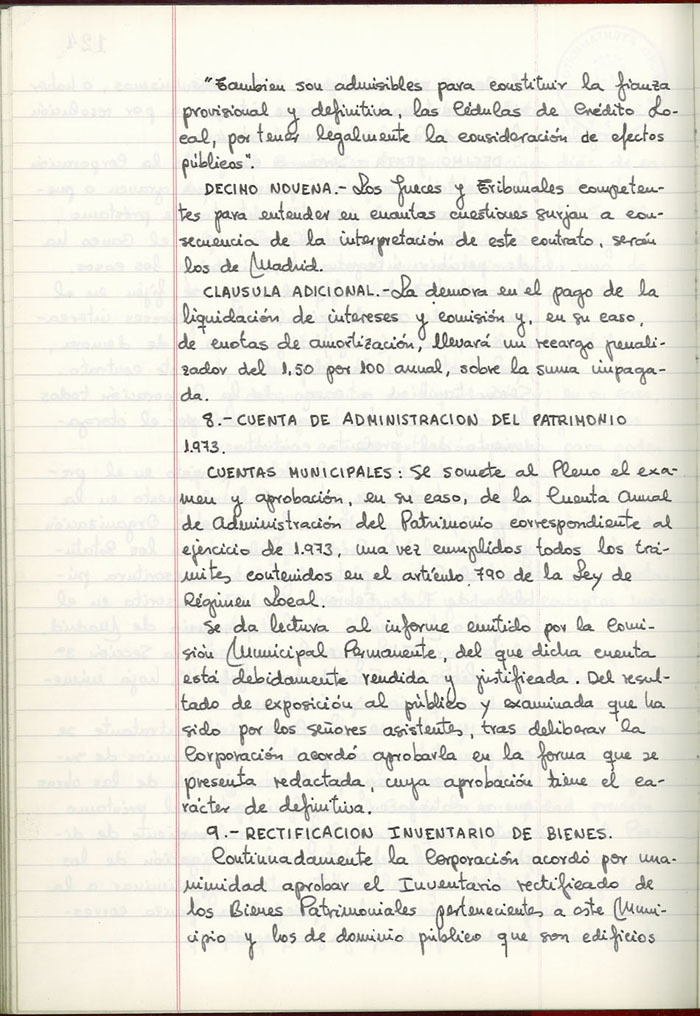 "Tambien son admisibles para constituir la fianza
provisional y definitiva, las Cédulas de Crédito Lo-
cal, por tener legalmente la consideración de efectos
públicos".
DECIMO NOVENA.- Los Jueces y Tribunales competen-
tes para entender en cuantas cuestiones surjan a con-
secuencia de la interpretación de este contrato, serán
los de Madrid.
CLAUSULA ADICIONAL.- La demora en el pago de la
liquidación de intereses y comisión y, en su caso,
de cuotas de amortización, llevará un recargo penali-
zador del 1,50 por 100 anual, sobre la suma impaga-
da.
8.- CUENTA DE ADMINISTRACION DEL PATRIMONIO
1.973.
CUENTAS MUNICIPALES: Se somete al Pleno el exa-
men y aprobación, en su caso, de la Cuenta Anual
de Administración del Patrimonio correspondiente al
ejercicio de 1.973, una vez cumplidos todos los trá-
mites contenidos en el artículo 790 de la Ley de
Régimen Local.
Se da lectura al informe emitido por la Comi-
sión Municipal Permanente, del que dicha cuenta
está debidamente rendida y justificada. Del resul-
tado de exposición al público y examinada que ha
sido por los señores asistentes, tras deliberar la
Corporación acordó aprobarla en la forma que se
presenta redactada, cuya aprobación tiene el ca-
rácter de definitiva.
9.- RECTIFICACION INVENTARIO DE BIENES.
Continuadamente la Corporación acordó por una-
nimidad aprobar el Inventario rectificado de
los Bienes Patrimoniales pertenecientes a este Muni-
cipio y los de dominio público que son edificios